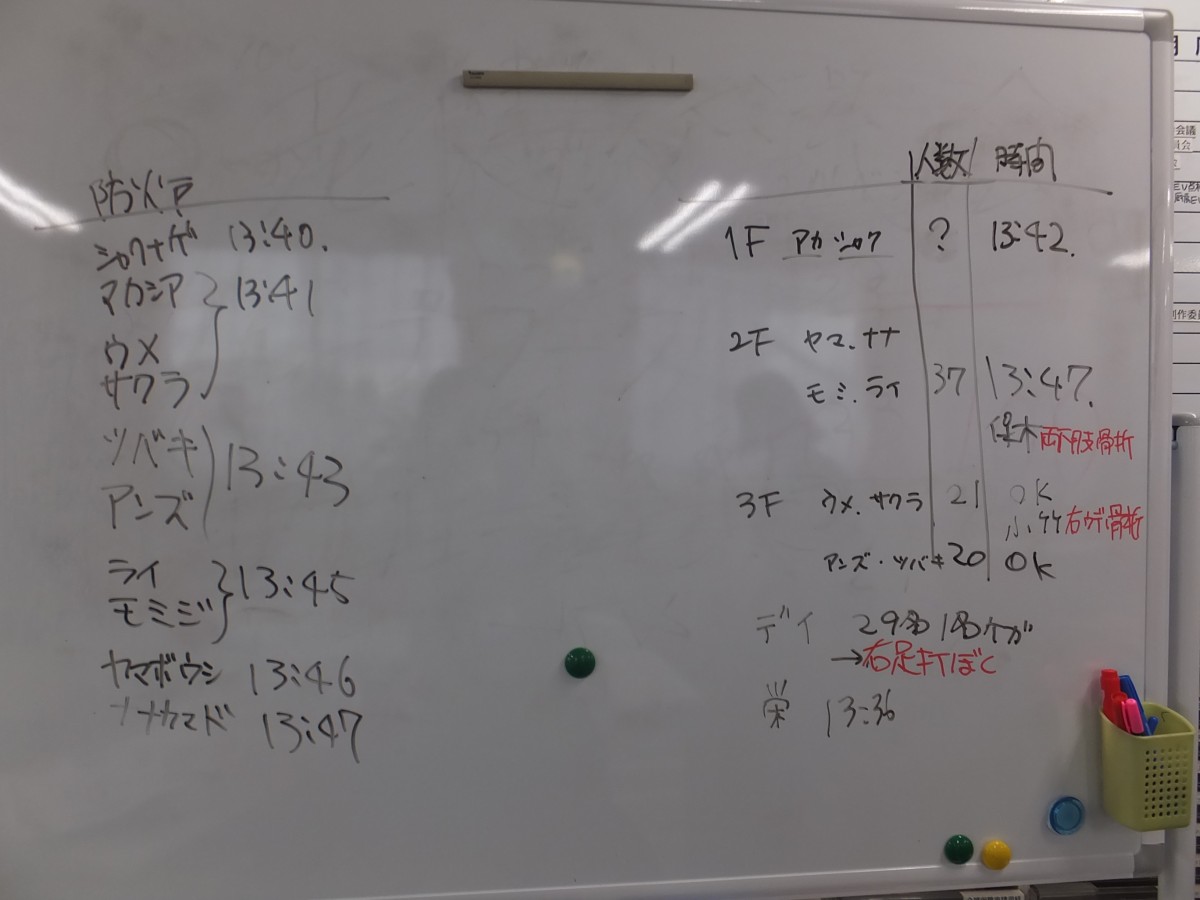 防火戸
シャクナゲ 13:40.
アカシア 13:41
ウメ
サクラ
ツバキ 13:43
アンズ
ライ 13:45
モミジ
ヤマボウシ 13:46
ナナカマド 13:47
人数 時間
1F アカ シャク ? 13:42.
2F ヤマ.ナナ
モミ.ライ 37 13:47.
両下肢骨折
3F ウメ.サクラ 21 OK
小竹 右ウデ骨折
アンズ・ツバキ 20 OK
デイ 29名 1名ケガ
→右足打ぼく
栄 13:36